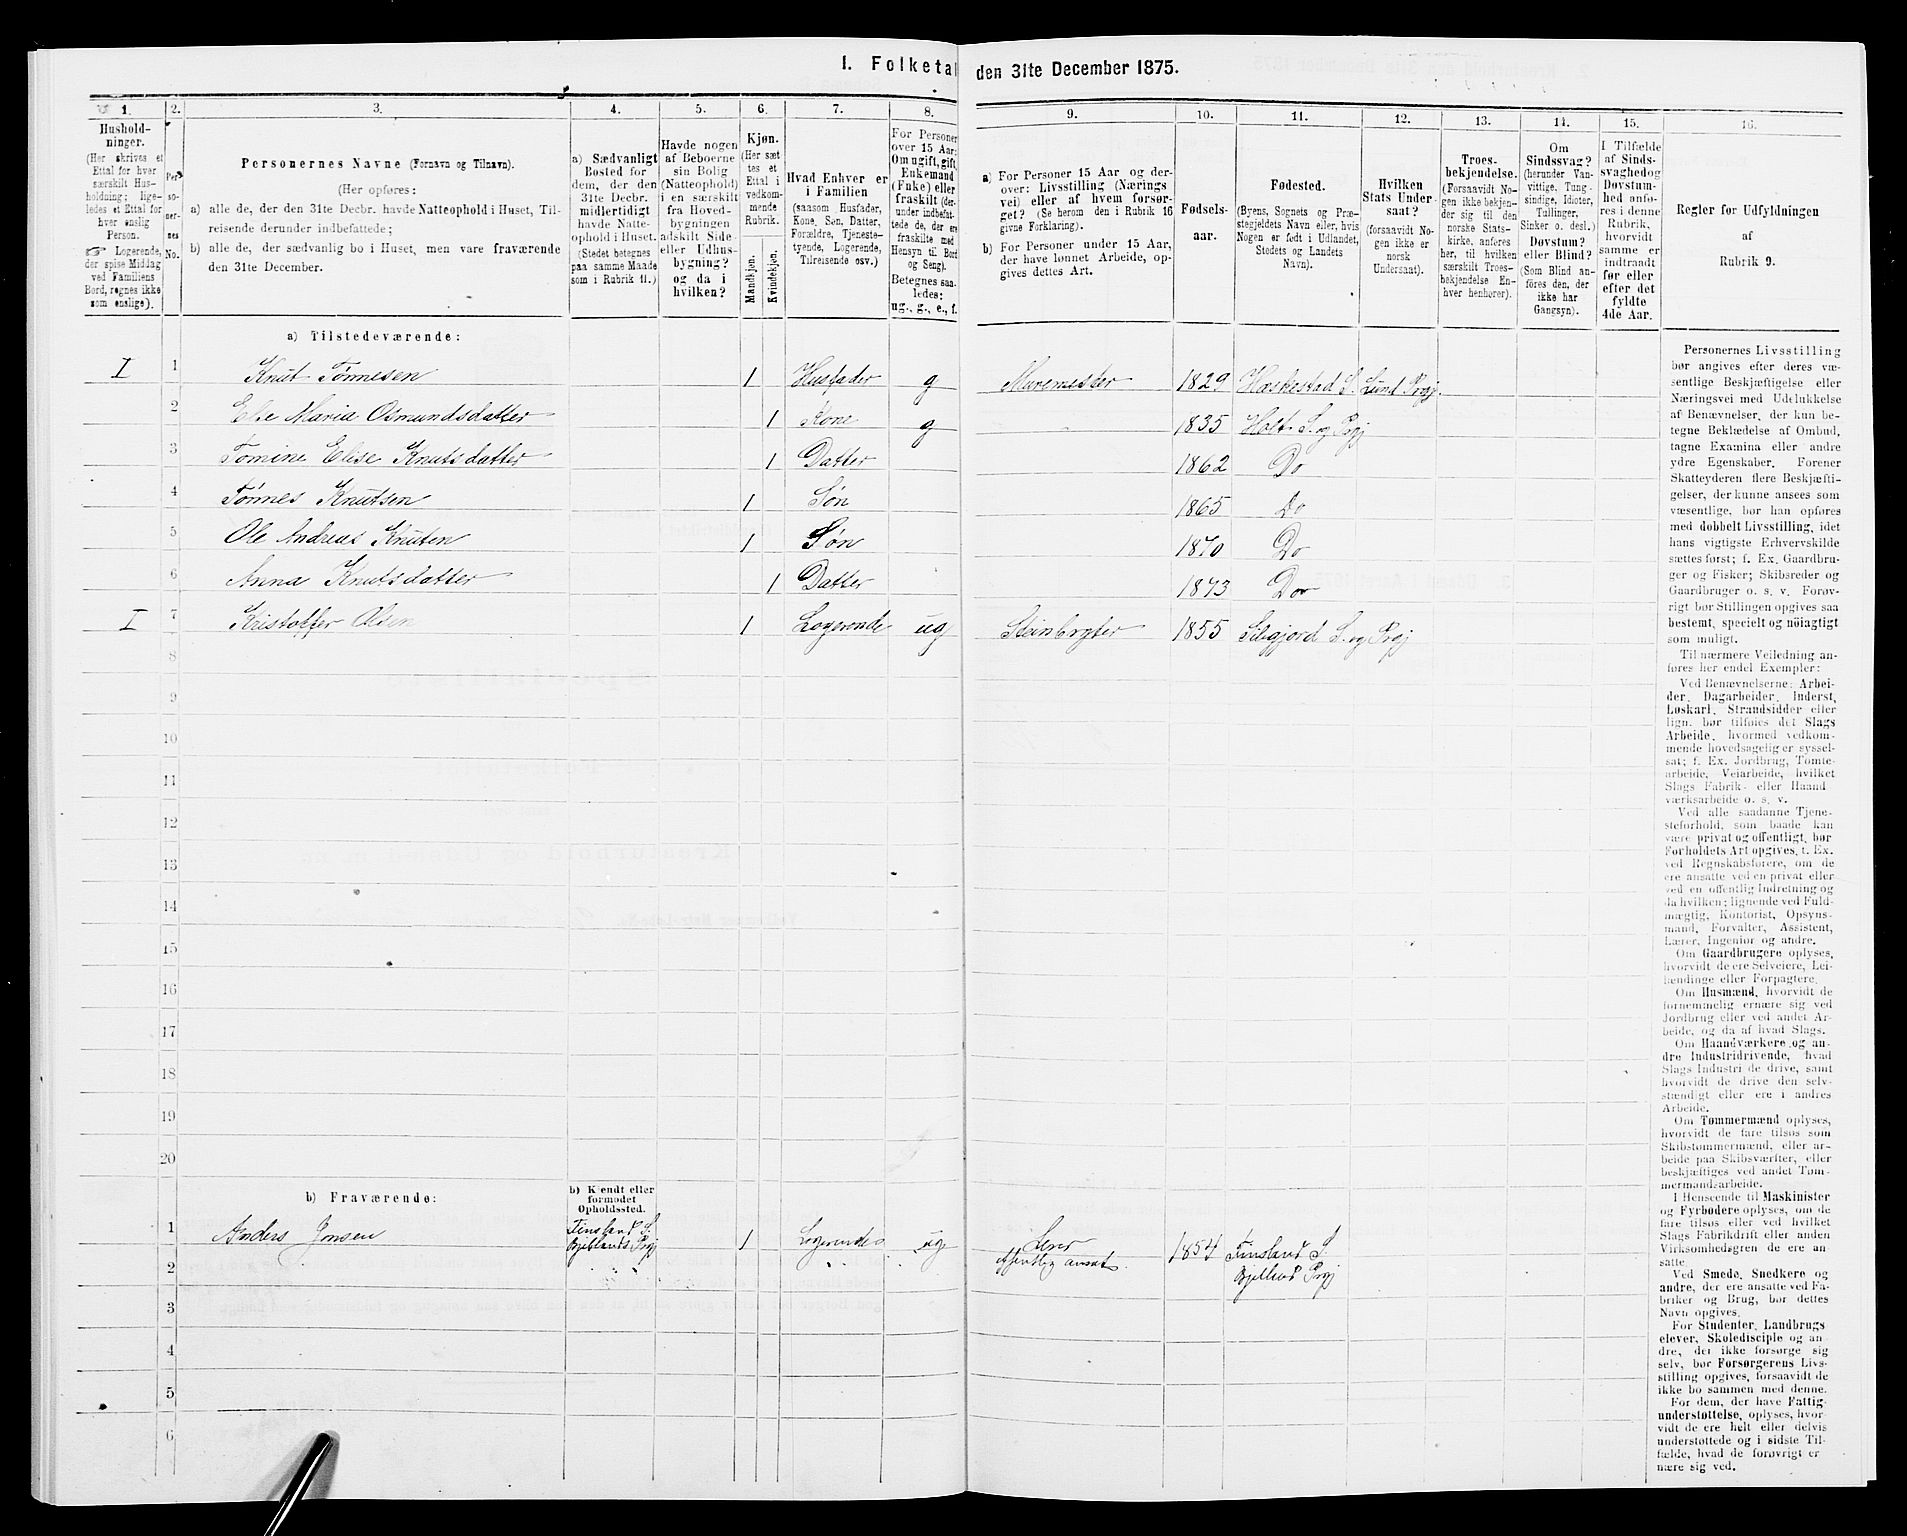 I. Folketal den 31te December 1875.
1. 2. 3. 4. 5. 6. 7. 8. 9. 10. 11. 12. 13. 14. 15. 16.
Hushold-
ninger.
(Her skrives et
Ettal for hver
særskilt Hus-
holdning; lige-
ledes et Ettal for
hver enslig
Person.
☞ Logerende,
der spise Middag
ved Familiens
Bord, regnes ikke
som enslige).
Per-
so-
ner-
nes
No.
Personernes Navne (Fornavn og Tilnavn).
(Her opføres:
a) alle de, der den 31te Decbr. havde Natteophold i Huset, Til-
reisende derunder indbefattede;
b) alle de, der sædvanlig bo i Huset, men vare fraværende
den 31te December.
a) Sædvanligt
Bosted for
dem, der den
31te Decbr.
midlertidigt
havde Natte-
ophold i Huset.
(Stedet betegnes
paa samme Maade
som i Rubrik 11.)
Havde nogen
af Beboerne
sin Bolig
(Natteophold)
i en særskilt
fra Hoved-
bygningen
adskilt Side-
eller Udhus-
bygning?
og da i
hvilken?
Kjøn.
(Her sæt-
tes et
Ettal i
vedkom-
mende
Rubrik.
Mandkjøn.
Kvindekjøn.
Hvad Enhver er
i Familien
(saasom Husfader,
Kone, Søn, Datter,
Forældre, Tjeneste-
tyende, Logerende,
Tilreisende osv.)
For Personer
over 15 Aar:
Om ugift, gift,
Enkemand
(Enke) eller
fraskilt (der-
under indbefat-
tede de, der ere
fraskilte med
Hensyn til Bord
og Seng).
Betegnes saa-
ledes:
ug., g., e., f.
a) For Personer 15 Aar og der-
over: Livsstilling (Nærings-
vei) eller af hvem forsør-
get? (Se herom den i Rubrik 16
givne Forklaring).
b) For Personer under 15 Aar,
der have lønnet Arbeide, op-
gives dettes Art.
Fødsels-
aar.
Fødested.
(Byens, Sognets og Præ-
stegjeldets Navn eller, hvis
Nogen er født i Udlandet,
Stedets og Landets
Navn).
Hvilken
Stats Under-
saat?
(forsaavidt No-
gen ikke er
norsk
Undersaat).
Troes-
bekjendelse.
(Forsaavidt No-
gen ikke bekjen-
der sig til den
norske Stats-
kirke, anføres
her, til hvilken
særskilt Troes-
bekjendelse En-
hver henhører).
Om
Sindssvag?
(herunder Van-
vittige, Tung-
sindige, Idioter,
Tullinger,
Sinker o. desl.)
Døvstum?
eller Blind?
(Som Blind an-
føres den, der
ikke har
Gangsyn).
I Tilfælde
af Sinds-
svaghed og
Døvstum-
hed anfø-
res i denne
Rubrik,
hvorvidt
samme er
indtraadt
før eller
efter det
fyldte
4de Aar.
Regler for Udfyldningen
af
Rubrik 9.
a) Tilstedeværende:
I 1 Knut Tönnesen 1 Husfader g Muremester 1829 Heskestad S. Lund Prgj.
2 Else Maria Osmundsdatter 1 Kone g 1835 Holt S. og Prgj
3 Tomine Elise Knutsdatter 1 Datter 1862 Do
4 Tönnes Knutsen 1 Søn 1865 Do
5 Ole Andreas Knutsen 1 Søn 1870 Do
6 Anna Knutsdatter 1 Datter 1873 Do
I 7 Kristoffer Olsen 1 Logerende ug Steinbryter 1855 Silgjord S. og Prgj
8
9
10
11
12
13
14
15
16
17
18
19
20
b) Fraværende:
b) Kjendt eller
formodet
Opholdssted.
1 Anders Jensen Finsland S. Bjellands Prgj 1 Logerende ug 1854 Finsland S.
Bjelland Prgj
2
3
4
5
6
Personernes Livsstilling
bør angives efter deres væ-
sentlige Beskjæftigelse eller
Næringsvei med Udelukkelse
af Benævnelser, der kun be-
tegne Beklædelse af Ombud,
tagne Examina eller andre
ydre Egenskaber. Forener
Skatteyderen flere Beskjæfti-
gelser, der kunne ansees som
væsentlige, bør han opføres
med dobbelt Livsstilling, idet
hans vigtigste Erhvervskilde
sættes først; f. Ex. Gaardbru-
ger og Fisker; Skibsreder og
Gaardbruger o. s. v. Forøv-
rigt bør Stillingen opgives saa
bestemt, specielt og nöiagtigt
som muligt.
Til nærmere Veiledning an-
føres her endel Exempler:
Ved Benævnelserne: Arbei-
der, Dagarbeider, Inderst,
Løskarl, Strandsidder eller
lign. bør tilføies det Slags
Arbeide, hvormed vedkom-
mende hovedsagelig er syssel-
sat; f. Ex. Jordbrug, Tomte-
arbeide, Veiarbeide, hvilket
Slags Fabrik- eller Haand-
værksarbeide o. s. v.
Ved alle saadanne Tjene-
steforhold, som baade kan
være privat og offentligt, bør
Forholdets Art opgives, f. Ex.
ved Regnskabsførere, om de
ere ansatte ved en privat eller
ved en offentlig Indretning og
da hvilken; lignende ved Fuld-
mægtig, Kontorist, Opsyns-
mand, Forvalter, Assistent,
Lærer, Ingeniør og andre.
Om Gaardbrugere oplyses,
hvorvidt de ere Selveiere, Lei-
lændinge eller Forpagtere.
Om Husmænd, hvorvidt de
fornemmelig ernære sig ved
Jordbrug eller ved andet Ar-
beide, og da af hvad Slags.
Om Haandværkere og an-
dre Industridrivende, hvad
Slags Industri de drive, samt
hvorvidt de drive den selv-
stændigt eller ere i andres
Arbeide.
Om Tømmermænd oplyses,
hvorvidt de fare tilsøs som
Skibstømmermænd, eller ar-
beide paa Skibsværfter, eller
beskjæftiges ved andet Tøm-
mermandsarbeide.
I Henseende til Maskinister
og Fyrbødere oplyses, om de
fare tilsøs eller ved hvilket
Slags Fabrikdrift eller anden
Virksomhedsgren de ere an-
satte.
Ved Smede, Snedkere og
andre, der ere ansatte ved Fa-
briker og Brug, bør dettes
Navn opgives.
For Studenter, Landbrugs-
elever, Skoledisciple og an-
dre, der ikke forsørge sig
selv, bør Forsørgerens Livs-
stilling opgives, forsaavidt de
ikke bo sammen med denne.
For dem, der have Fattig-
understøttelse, oplyses, hvor-
vidt de ere helt eller delvis
understøttede og i sidste Til-
fælde, hvad de forøvrigt er-
nære sig ved.